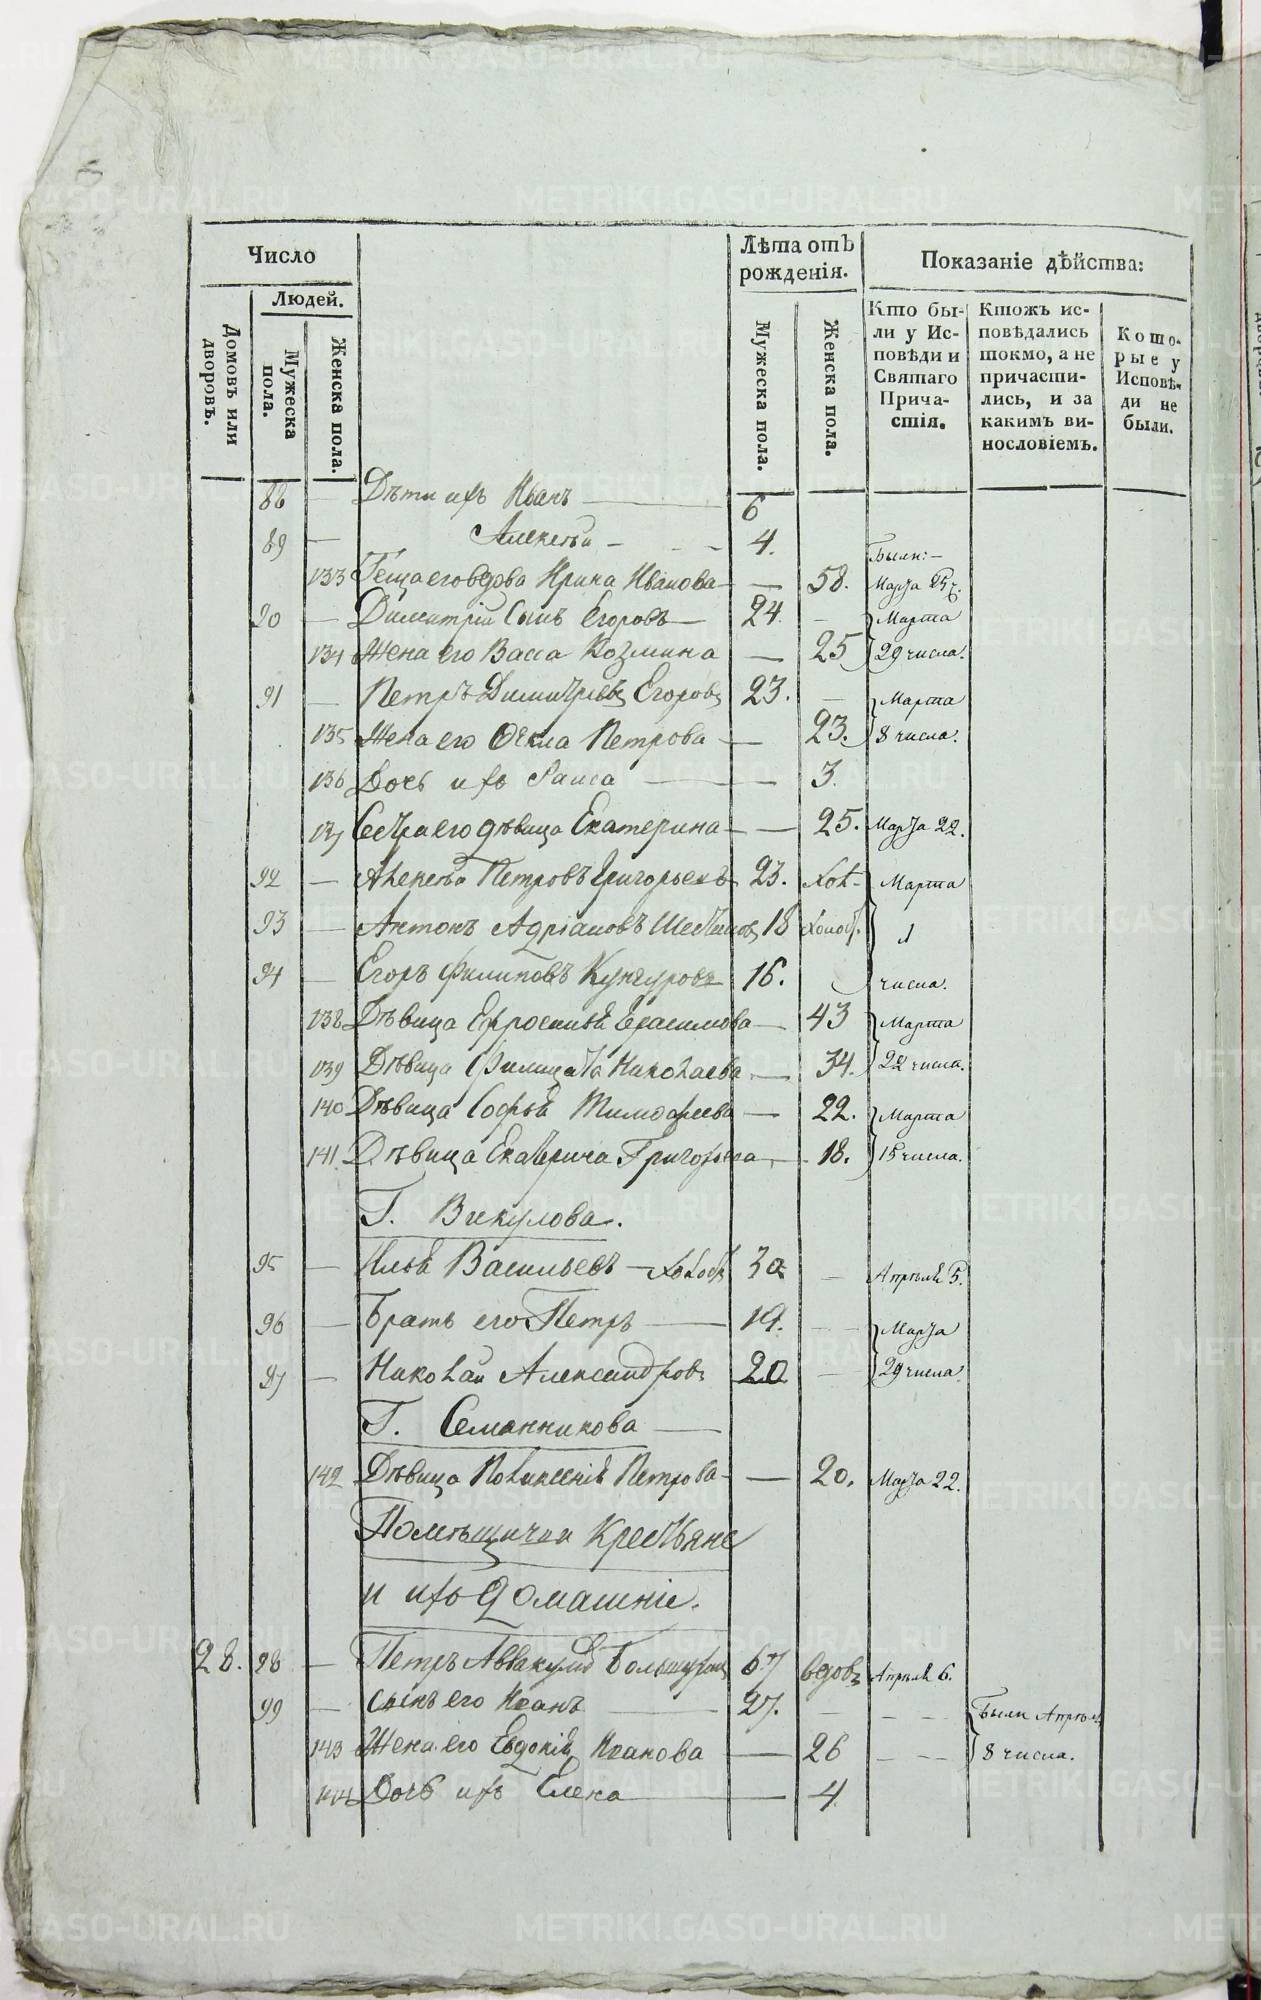 Число
Людей.
Домовъ или дворовъ.
Мужеска пола.
Женска пола.
Лѣта отъ рожденія.
Мужеска пола.
Женска пола.
Показаніе дѣйства:
Кто были у Исповѣди и Святаго Причастія.
Ктожъ исповѣдались токмо, а не причастились, и за какимъ винословіемъ.
Которые у Исповѣди не были.
88 — Дѣти ихъ Иванъ — 6
89 — Алексѣй — 4.
Были:—
133 Теща его вдова Ирина Иванова — — 58. Марта 25
90 — Димитрій сынъ Егоровъ — 24. — Марта
134 Жена его Васса Козмина — 25 29 числа.
91 — Петръ Димитріевъ Егоровъ 23. — Марта
135 Жена его Ѳекла Петрова — 23. 8 числа.
136 Дочь ихъ Раиса — 3.
137 Сестра его дѣвица Екатерина — — 25. Марта 22.
92 — Алексѣй Петровъ Григорьевъ 23. Хол- Марта
93 — Антонъ Адріановъ 18 Холост. 1
94 — Егоръ Филиповъ Кунгуровъ 16. числа.
138 Дѣвица Ефросинія Герасимова — 43 Марта
139 Дѣвица Филицата Николаева — 34. 22 числа.
140 Дѣвица Софья Тимофеева — 22. Марта
141 Дѣвица Екатерина Григорьева — 18. 15 числа.
Г. Викулова.
95 — Илья Васильевъ — Холостъ 30 — Апрѣля 5.
96 — Братъ его Петръ — 19. — Марта
97 — Николай Александровъ 20 — 29 числа.
Г. Семянникова —
142 Дѣвица Поликсенія Петрова — — 20. Марта 22.
Помѣщичьи Крестьяне
и ихъ домашніе.
28. 98 — Петръ Аввакумовъ 67 вдовъ Апрѣля 6.
99 — Сынъ его Иванъ — 27. — — — Были Апрѣля
143 Жена его Евдокія Иванова — 26 — — 8 числа.
144 Дочь ихъ Елена — — 4.
METRIKI.GASO-URAL.RU